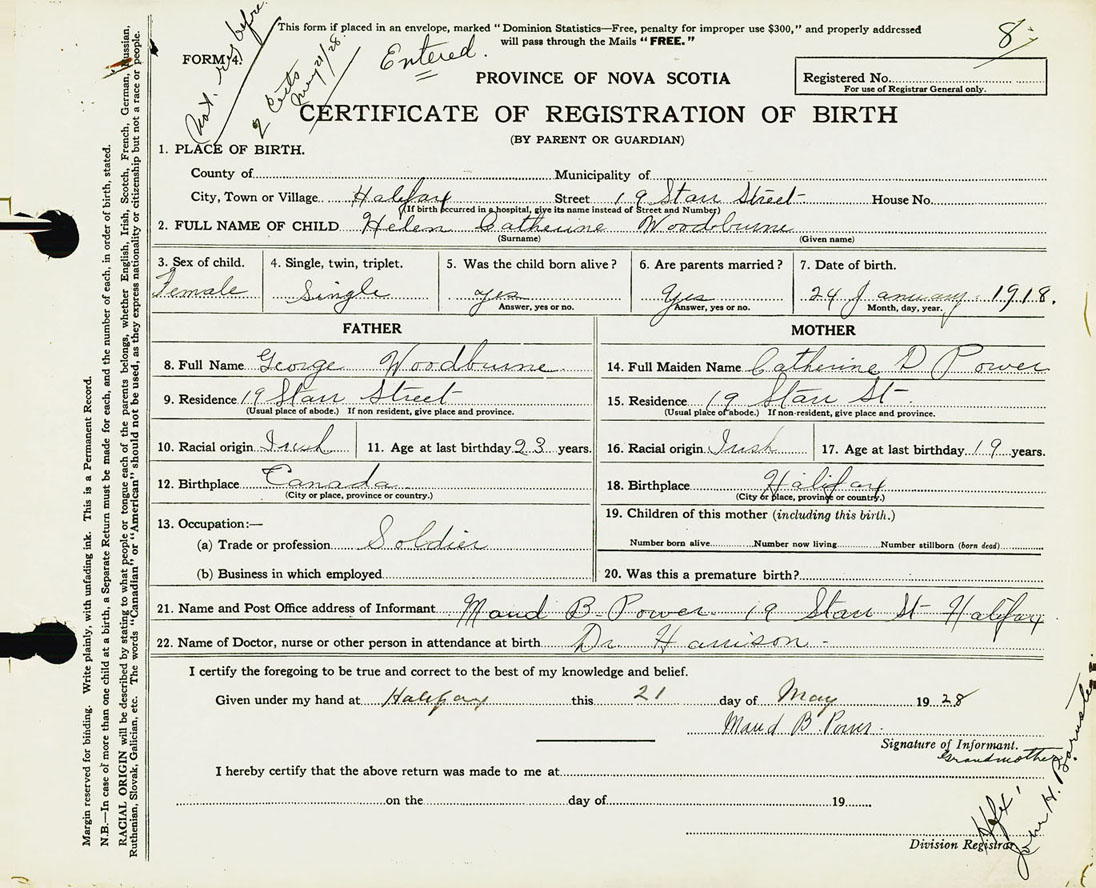 This form if placed in an envelope, marked "Dominion Statistics—Free, penalty for improper use $300," and properly addressed
will pass through the Mails "FREE."
8
FORM 4.
Not. reg before
2 Certs
May 21/28
Entered.
PROVINCE OF NOVA SCOTIA
Registered No.
For use of Registrar General only.
CERTIFICATE OF REGISTRATION OF BIRTH
(BY PARENT OR GUARDIAN)
1. PLACE OF BIRTH.
County of Municipality of
City, Town or Village Halifax Street 19 Starr Street House No.
(If birth occurred in a hospital, give its name instead of Street and Number)
2. FULL NAME OF CHILD Helen Catherine Woodburne
(Surname) (Given name)
3. Sex of child. 4. Single, twin, triplet. 5. Was the child born alive? 6. Are parents married? 7. Date of birth.
Female Single yes Yes 24 January 1918.
Answer, yes or no. Answer, yes or no. Month, day, year.
FATHER MOTHER
8. Full Name George Woodburne 14. Full Maiden Name Catherine D Power
9. Residence 19 Starr Street 15. Residence 19 Starr St
(Usual place of abode.) If non resident, give place and province. (Usual place of abode.) If non-resident, give place and province.
10. Racial origin Irish 11. Age at last birthday 23 years. 16. Racial origin Irish 17. Age at last birthday 19 years.
12. Birthplace Canada 18. Birthplace Halifax
(City or place, province or country.) (City or place, province or country.)
13. Occupation:— 19. Children of this mother (including this birth.)
(a) Trade or profession Soldier Number born alive Number now living Number stillborn (born dead)
(b) Business in which employed 20. Was this a premature birth?
21. Name and Post Office address of Informant Maud B Power 19 Starr St Halifax
22. Name of Doctor, nurse or other person in attendance at birth Dr. Harrison
I certify the foregoing to be true and correct to the best of my knowledge and belief.
Given under my hand at Halifax this 21 day of May 1928
Maud B. Power
Signature of Informant.
Grandmother
I hereby certify that the above return was made to me at
on the day of 19
Division Registrar
Hfx
John H. Barnstead
Margin reserved for binding. Write plainly, with unfading ink. This is a Permanent Record.
N.B.—In case of more than one child at a birth, a Separate Return must be made for each, and the number of each, in order of birth, stated.
RACIAL ORIGIN will be described by stating to what people or tongue each of the parents belongs, whether English, Irish, Scotch, French, German, Russian,
Ruthenian, Slovak, Galician, etc. The words "Canadian" or "American" should not be used, as they express nationality or citizenship but not a race or people.